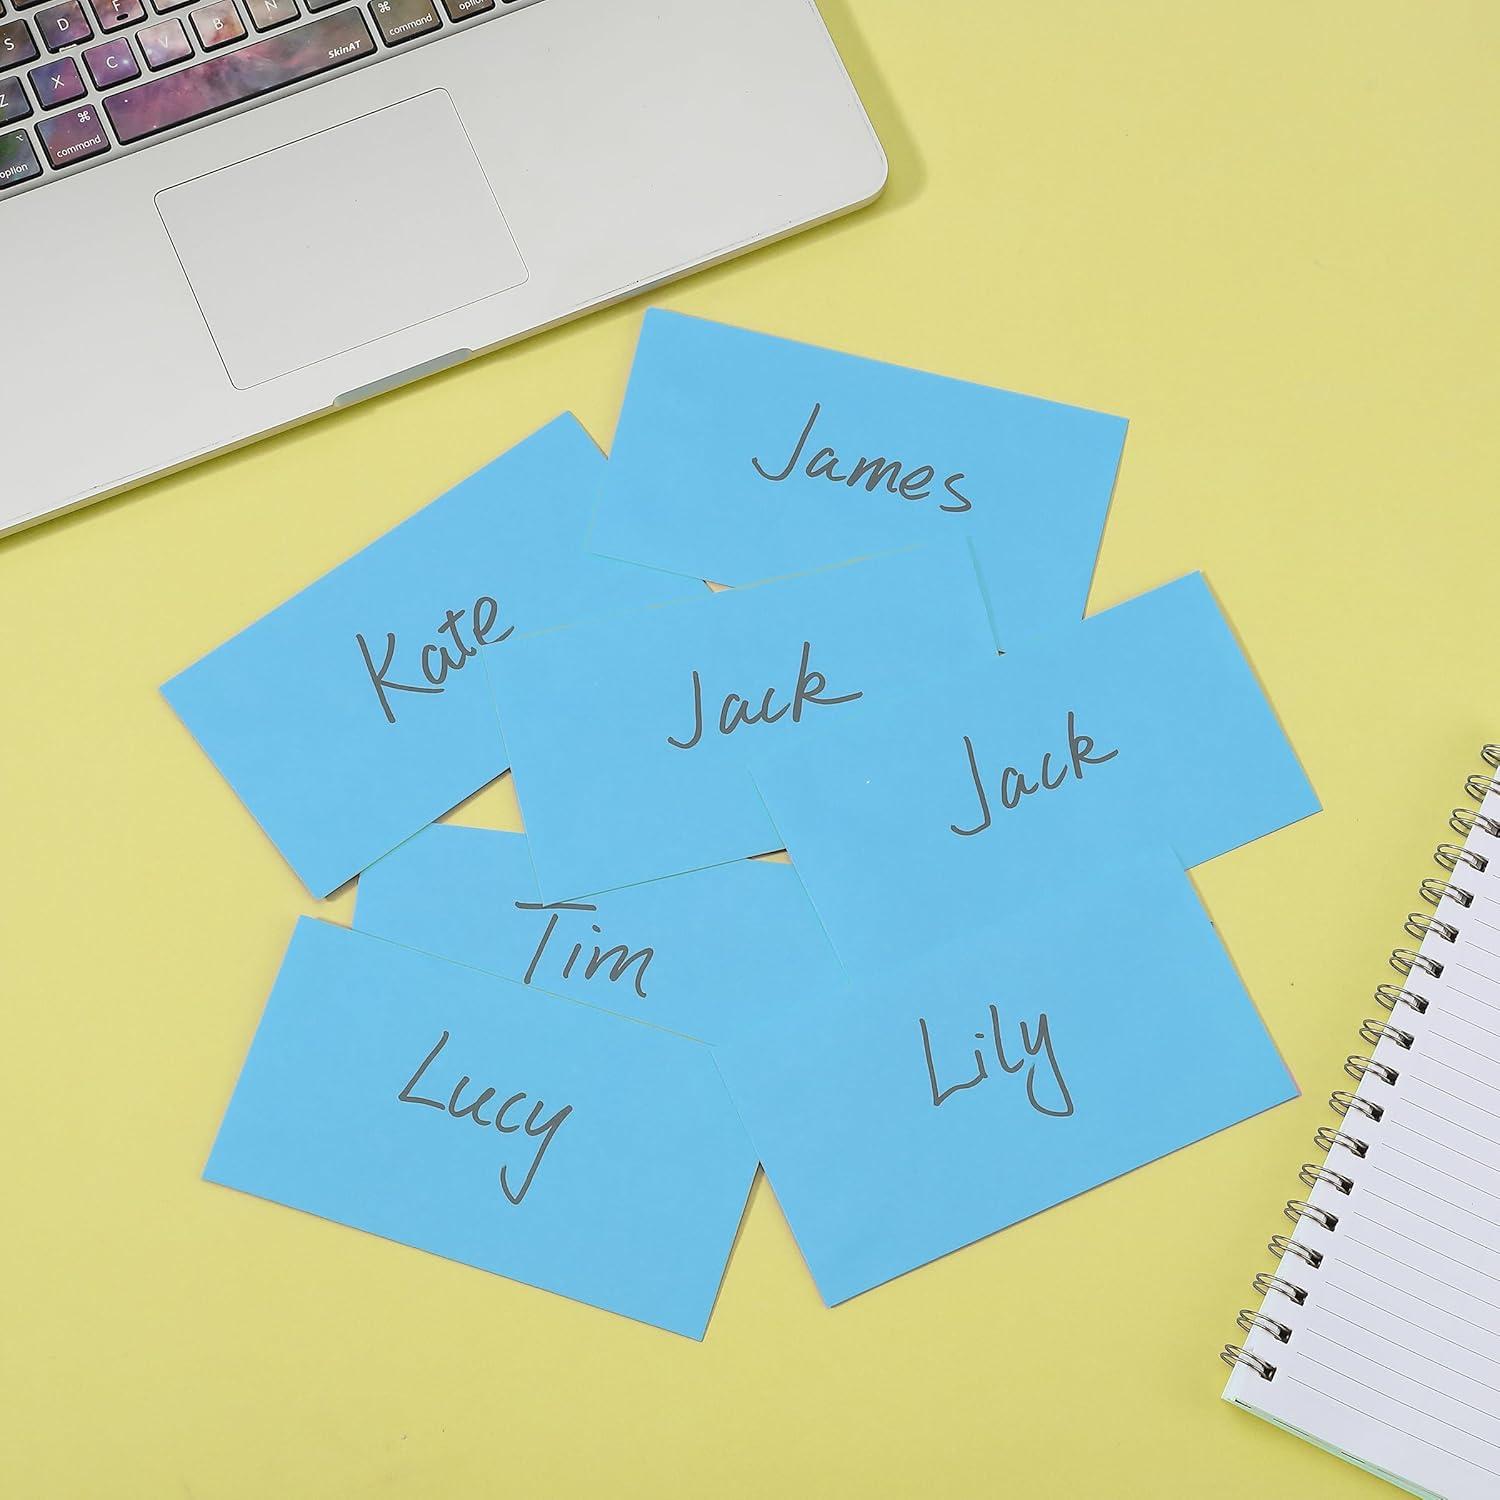 S D F B N ⌘ command option
Z X C V B SkinAT
⌥ option ⌘ command
James
Kate
Jack
Jack
Tim
Lily
Lucy